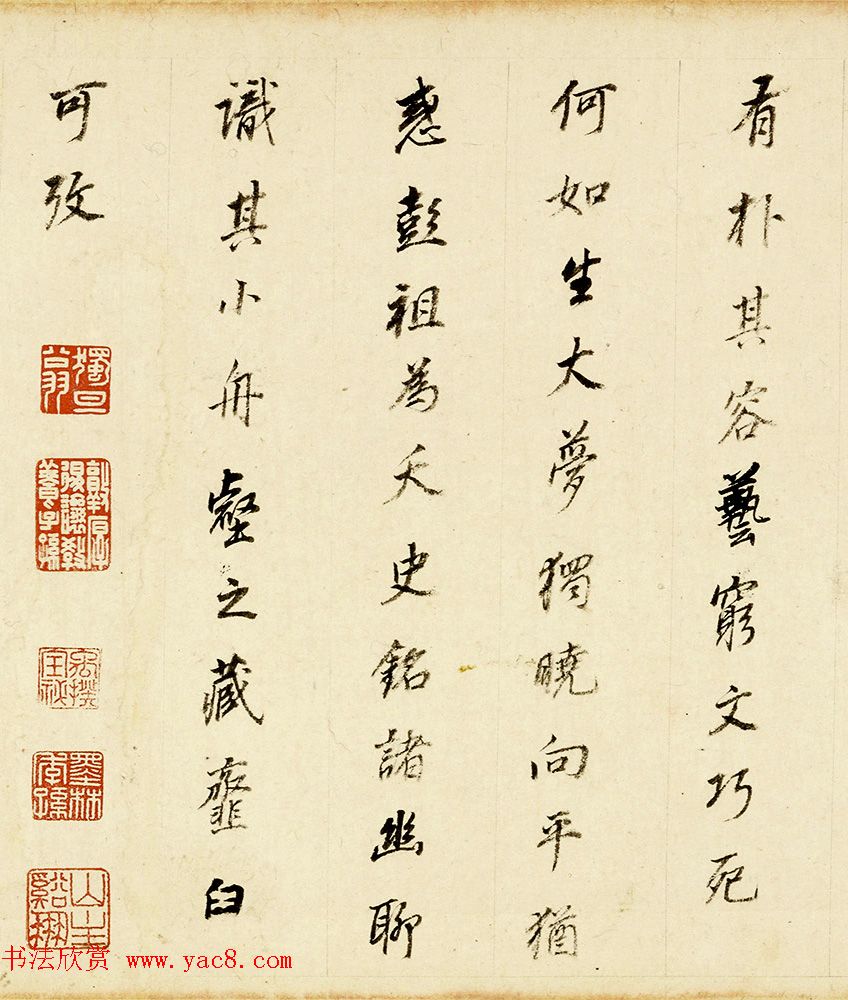 有朴其容藝窮文巧死
何如生大夢獨曉向平猶
惑彭祖為夭史銘諸幽聊
識其小舟壑之藏韲臼
可攷
书法欣赏 www.yac8.com